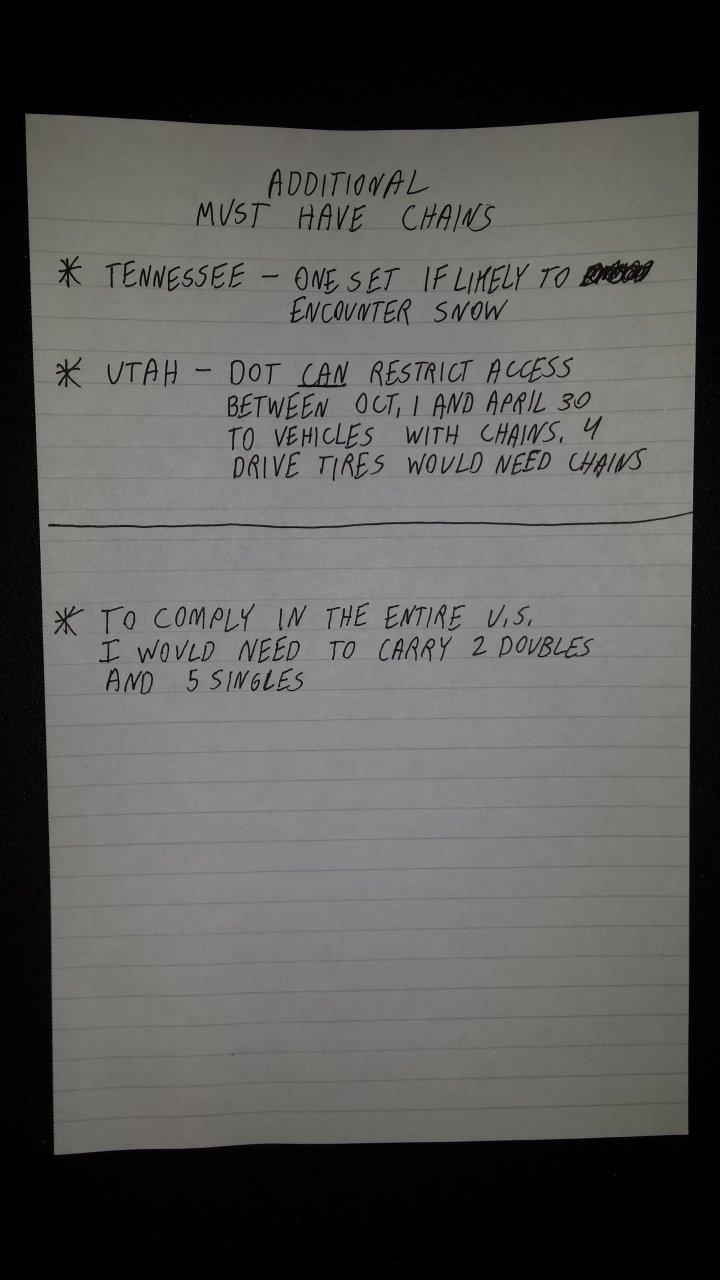 ADDITIONAL
MUST HAVE CHAINS
* TENNESSEE - ONE SET IF LIKELY TO
ENCOUNTER SNOW
* UTAH - DOT CAN RESTRICT ACCESS
BETWEEN OCT, 1 AND APRIL 30
TO VEHICLES WITH CHAINS. 4
DRIVE TIRES WOULD NEED CHAINS
* TO COMPLY IN THE ENTIRE U.S.
I WOULD NEED TO CARRY 2 DOUBLES
AND 5 SINGLES